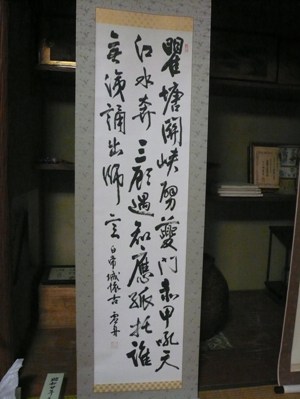 瞿塘開峽劈夔門赤甲吼天
江水奔三顧遇知應孤托誰
無淚誦出師言 白帝城懷古